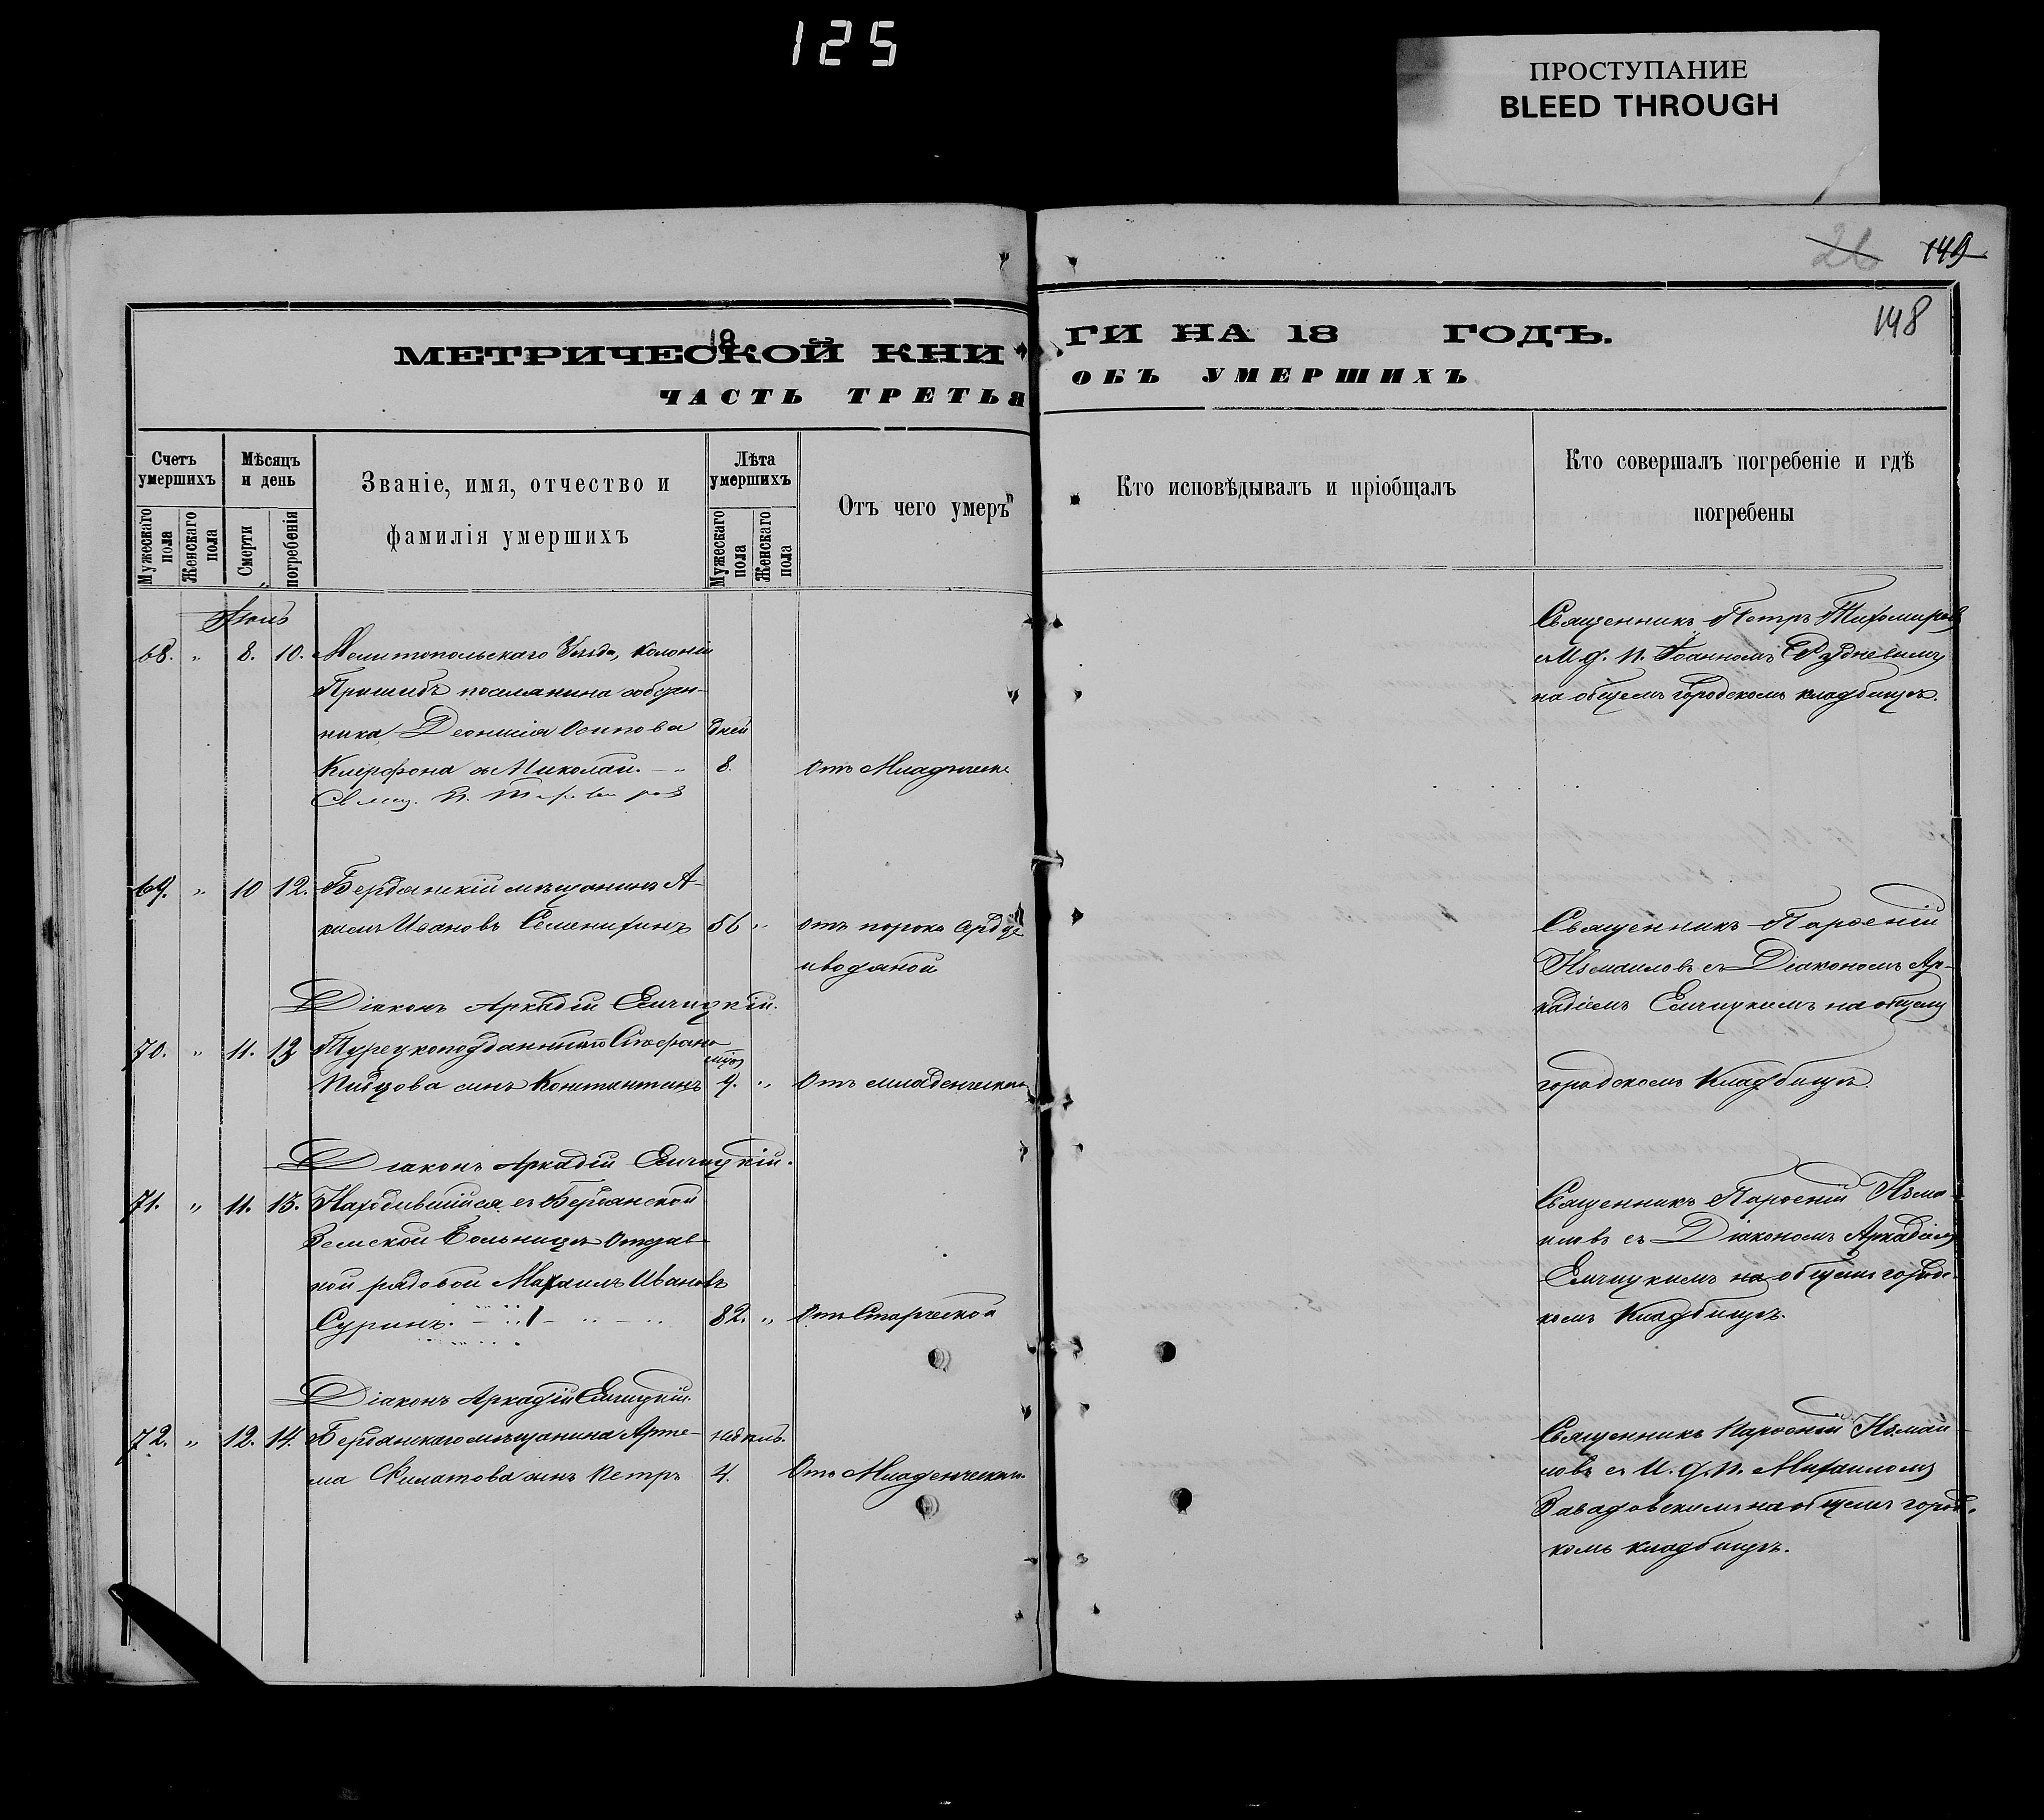 125
ПРОСТУПАНИЕ
BLEED THROUGH
26 149
148
18
МЕТРИЧЕСКОЙ КНИ
ГИ НА 18 ГОДЪ.
ЧАСТЬ ТРЕТЬЯ
ОБЪ УМЕРШИХЪ
Счетъ умершихъ
Мужескаго пола
Женскаго пола
Мѣсяцъ и день
Смерти
погребенія
Званіе, имя, отчество и
фамилія умершихъ
Лѣта умершихъ
Мужескаго пола
Женскаго пола
Отъ чего умеръ
Кто исповѣдывалъ и пріобщалъ
Кто совершалъ погребеніе и гдѣ
погребены
68. " 8. 10. Мелитопольскаго Уѣзда, колоніи
Пришибъ поселянина
Деонисія Осипова дней
Николай. 8. Отъ
Священникъ Петръ Тихомировъ
съ И. д. п. Іоанномъ
на общемъ городскомъ кладбищѣ.
69. " 10 12. Бердянскій мѣщанинъ А-
кимъ Ивановъ Семенихинъ 56 " отъ порока сердца
и водяной
Діаконъ Аркадій Елчицкій.
Священникъ Парѳеній
Измаиловъ съ Діакономъ Ар-
кадіемъ Елчицкимъ на общемъ
городскомъ Кладбищѣ.
70. " 11. 13 Турецкоподданнаго
сынъ Константинъ 9. " Отъ младенческой
Діаконъ Аркадій Елчицкій.
71. " 11. 13. Находившійся въ Бердянской
Земской Больницѣ Отстав-
ной рядовой Михаилъ Ивановъ
Суринъ. 82. " Отъ Старческой
Священникъ Парѳеній Изма-
иловъ съ Діакономъ Аркадіемъ
Елчицкимъ на общемъ городс-
комъ Кладбищѣ.
Діаконъ Аркадій Елчицкій.
72. " 12. 14. Бердянскаго мѣщанина Арте-
ма Филатова сынъ Петръ 4. Отъ Младенческой
Священникъ Парѳеній Измаи-
ловъ съ И. д. п. Михаиломъ
Завадовскимъ на общемъ город-
комъ кладбищѣ.